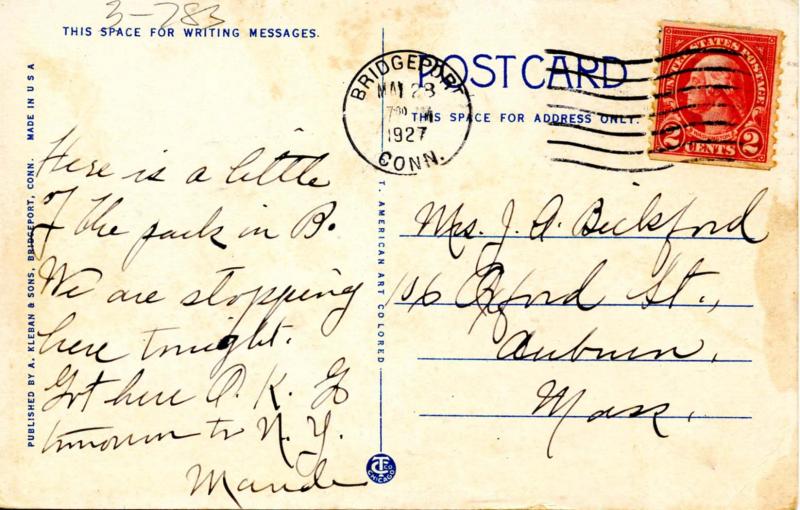 3-283
THIS SPACE FOR WRITING MESSAGES.
POST CARD
THIS SPACE FOR ADDRESS ONLY.
BRIDGEPORT
MAY 28
7:00 M
1927
CONN.
UNITED STATES POSTAGE
2 CENTS 2
Here is a little
of the park in B.
We are stopping
here tonight.
Got here O.K. Go
tomorrow to N.Y.
Maude
Mrs. J. A. Bickford
106 Oxford St.,
Auburn,
Mass.
PUBLISHED BY A. KLEBAN & SONS, BRIDGEPORT, CONN. MADE IN U S A
T. AMERICAN ART COLORED
CT CO
CHICAGO